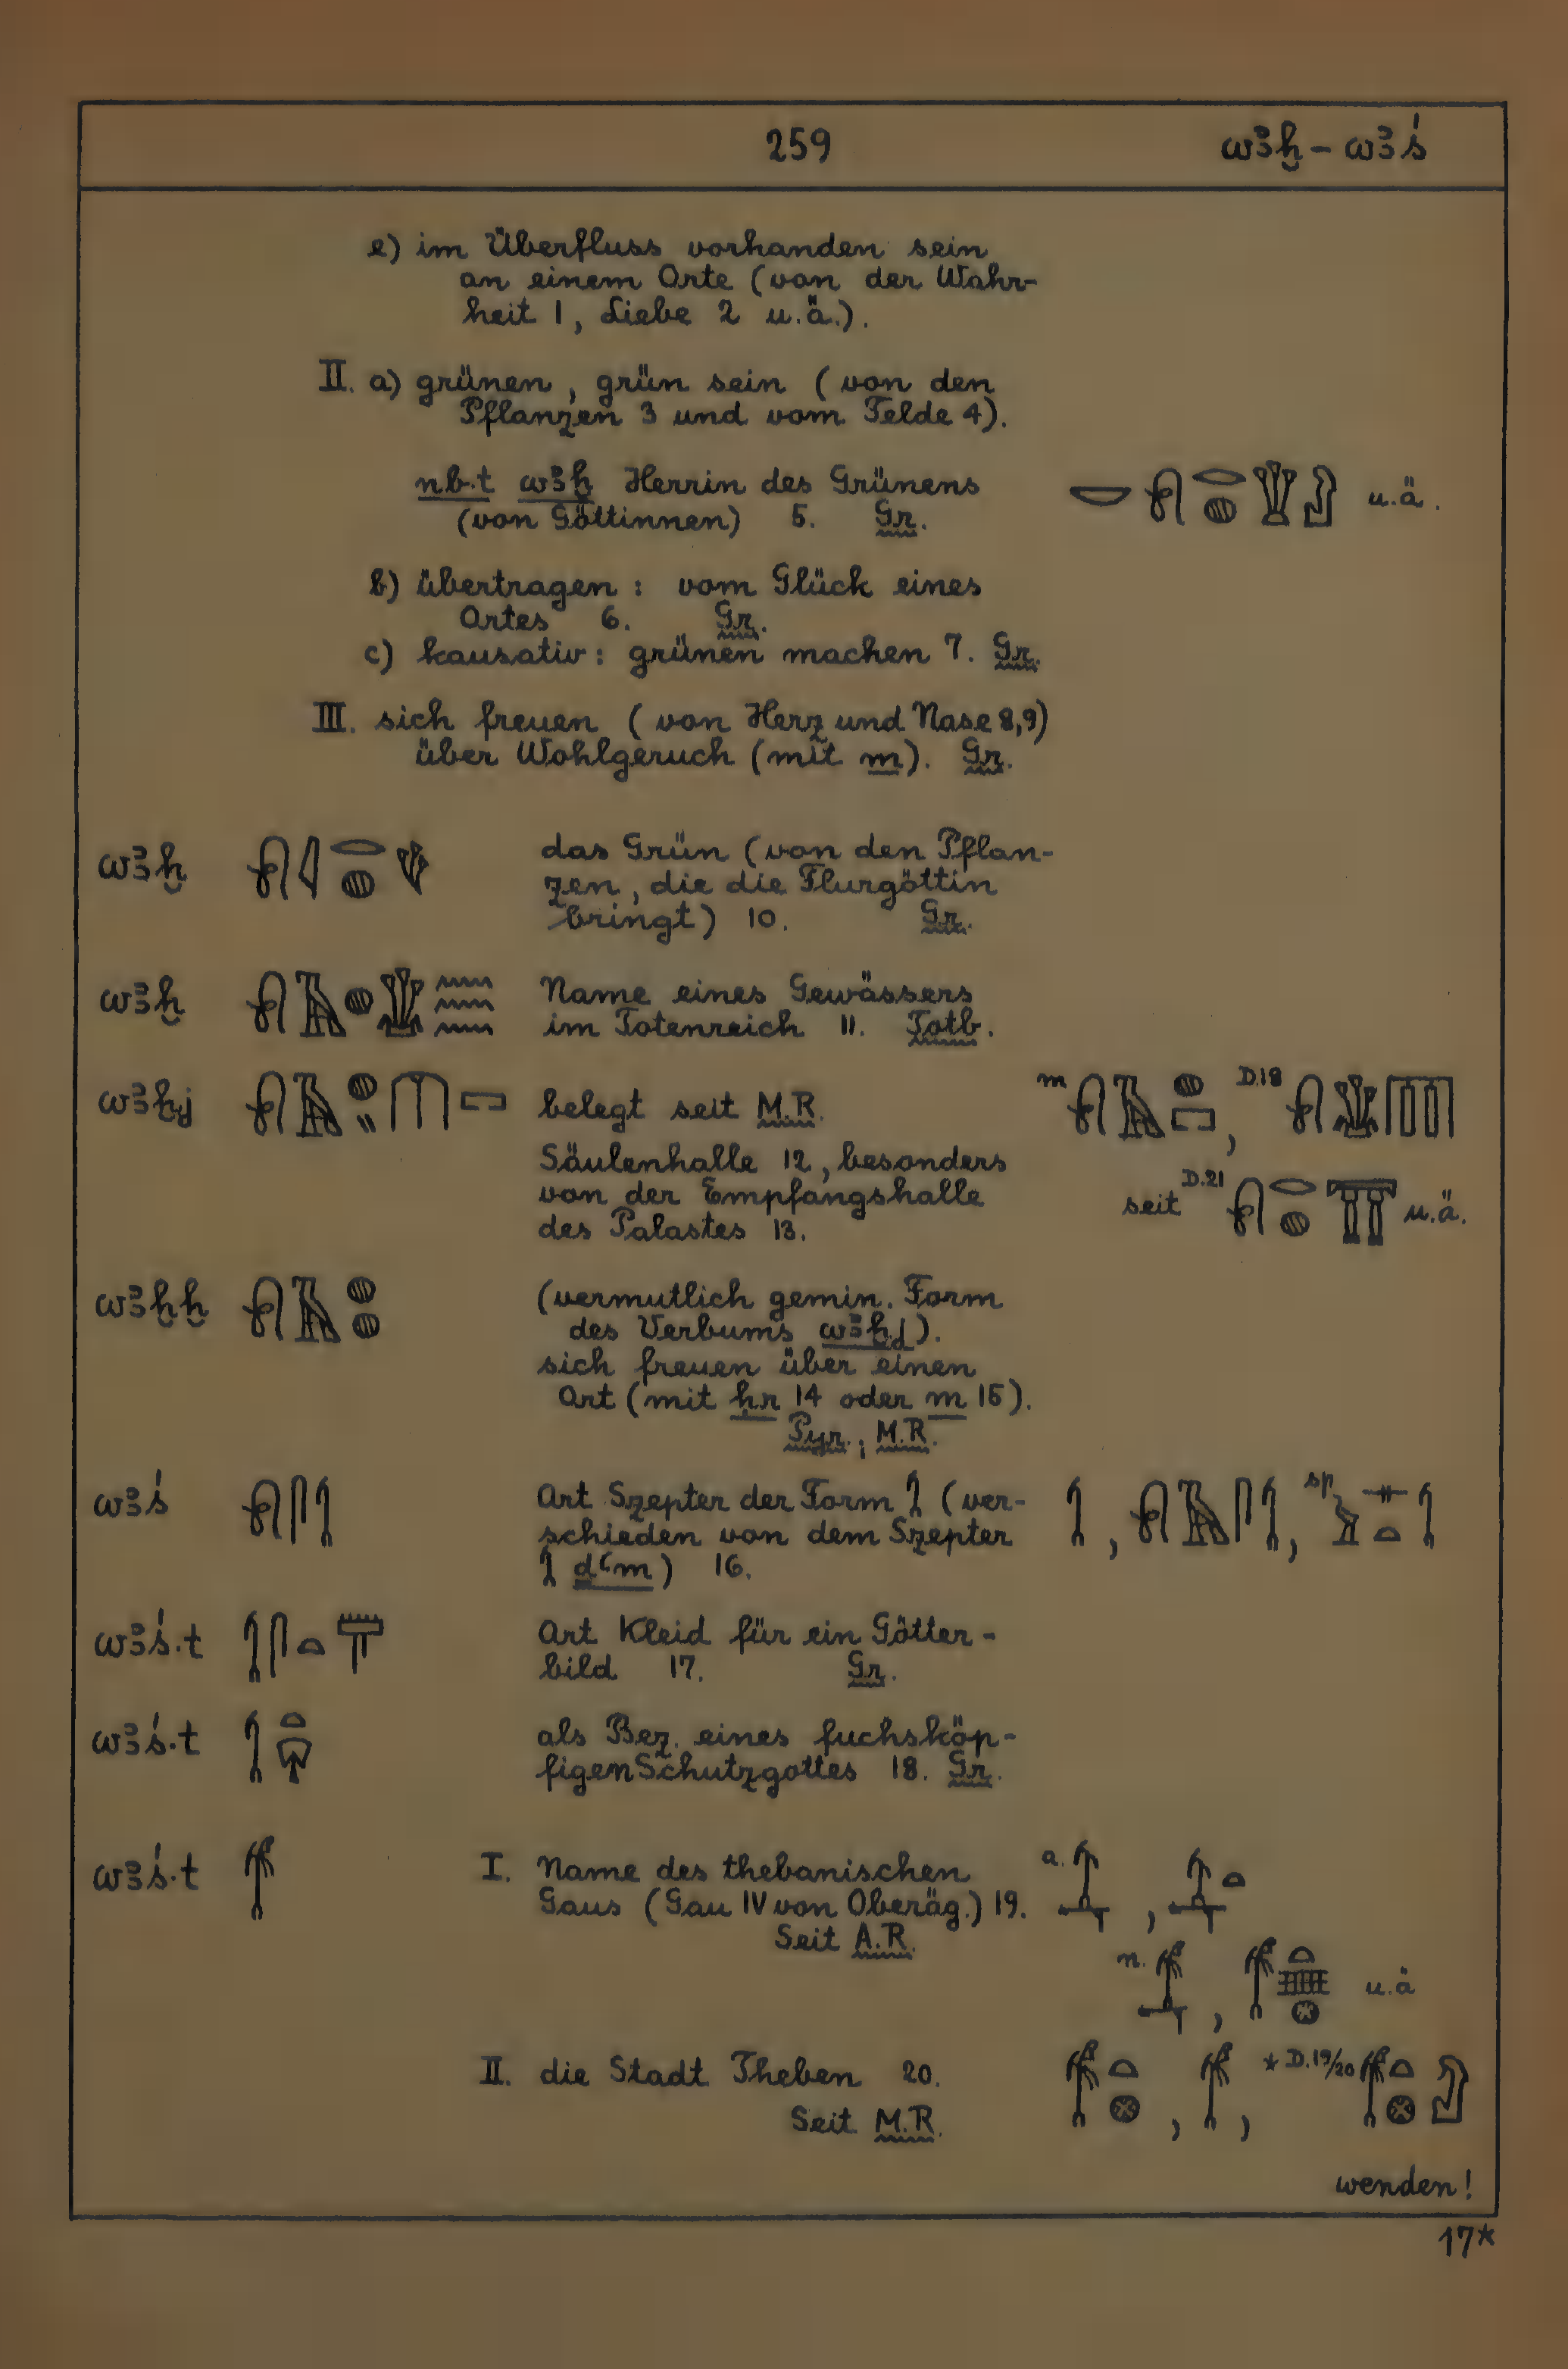 259
wꜣḫ – wꜣś
e) im Überfluss vorhanden sein
an einem Orte (von der Wahr-
heit 1, Liebe 2 u.ä.).
II. a) grünen, grün sein (von den
Pflanzen 3 und vom Felde 4).
nb.t wꜣḫ Herrin des Grünens
(von Göttinnen) 5. Gr.
u.ä.
b) übertragen: vom Glück eines
Ortes 6. Gr.
c) kausativ: grünen machen 7. Gr.
III. sich freuen (von Herz und Nase 8,9)
über Wohlgeruch (mit m). Gr.
wꜣḫ das Grün (von den Pflan-
zen, die die Flurgöttin
bringt) 10. Gr.
wꜣḫ Name eines Gewässers
im Totenreich 11. Totb.
wꜣḫj belegt seit M.R.
m , D.18
Säulenhalle 12, besonders
von der Empfangshalle
des Palastes 13.
seit D.21 u.ä.
wꜣḫḫ (vermutlich gemin. Form
des Verbums wꜣḫj).
sich freuen über einen
Ort (mit ḥr 14 oder m 15).
Pyr.; M.R.
wꜣś Art Szepter der Form (ver-
schieden von dem Szepter
ḏꜥm) 16.
, , sp.
wꜣś.t Art Kleid für ein Götter-
bild 17. Gr.
wꜣś.t als Bez. eines fuchsköp-
figen Schutzgottes 18. Gr.
wꜣś.t I. Name des thebanischen
Gaus (Gau IV von Oberäg.) 19.
Seit A.R.
a. ,
n. , u.ä
II. die Stadt Theben 20.
Seit M.R.
, , * D.19/20
wenden!
17*